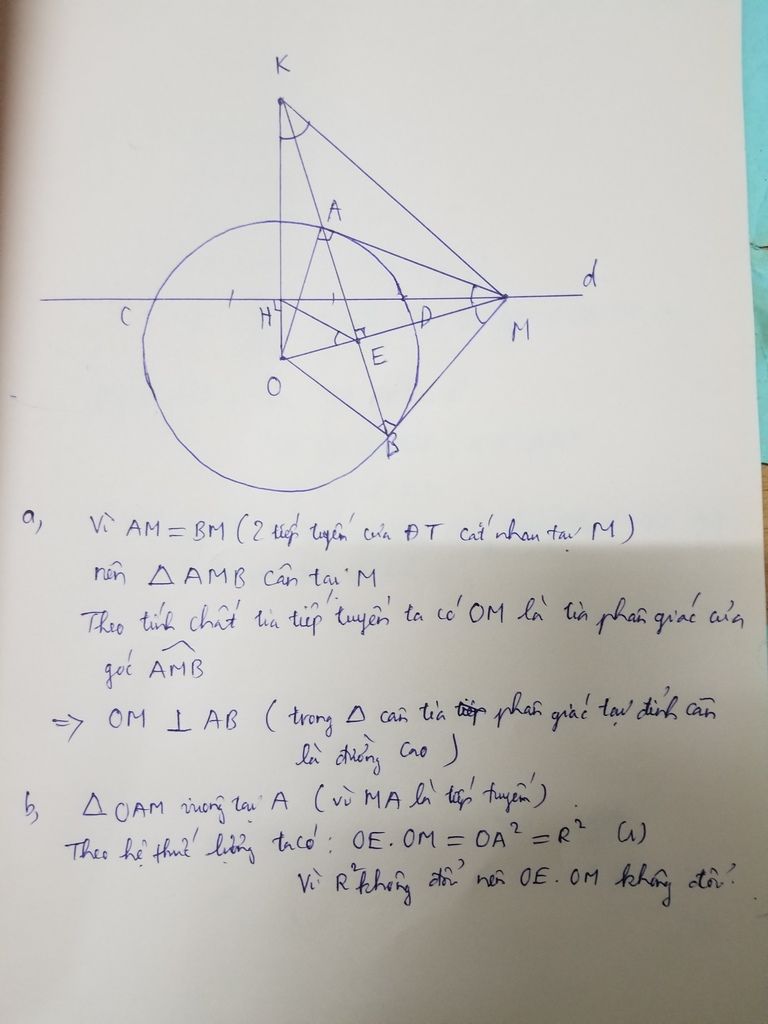 K
A
d
C
H
D
M
E
O
B
a, Vì AM = BM (2 tiếp tuyến của ĐT cắt nhau tại M)
nên △ AMB cân tại M
Theo tính chất tia tiếp tuyến ta có OM là tia phân giác của
góc \widehat{AMB}
=> OM ⊥ AB ( trong △ cân tia phân giác tại đỉnh cân
là đường cao )
b, △ OAM vuông tại A ( vì MA là tiếp tuyến )
Theo hệ thức lượng ta có : OE . OM = OA² = R² (1)
Vì R² không đổi nên OE . OM không đổi.